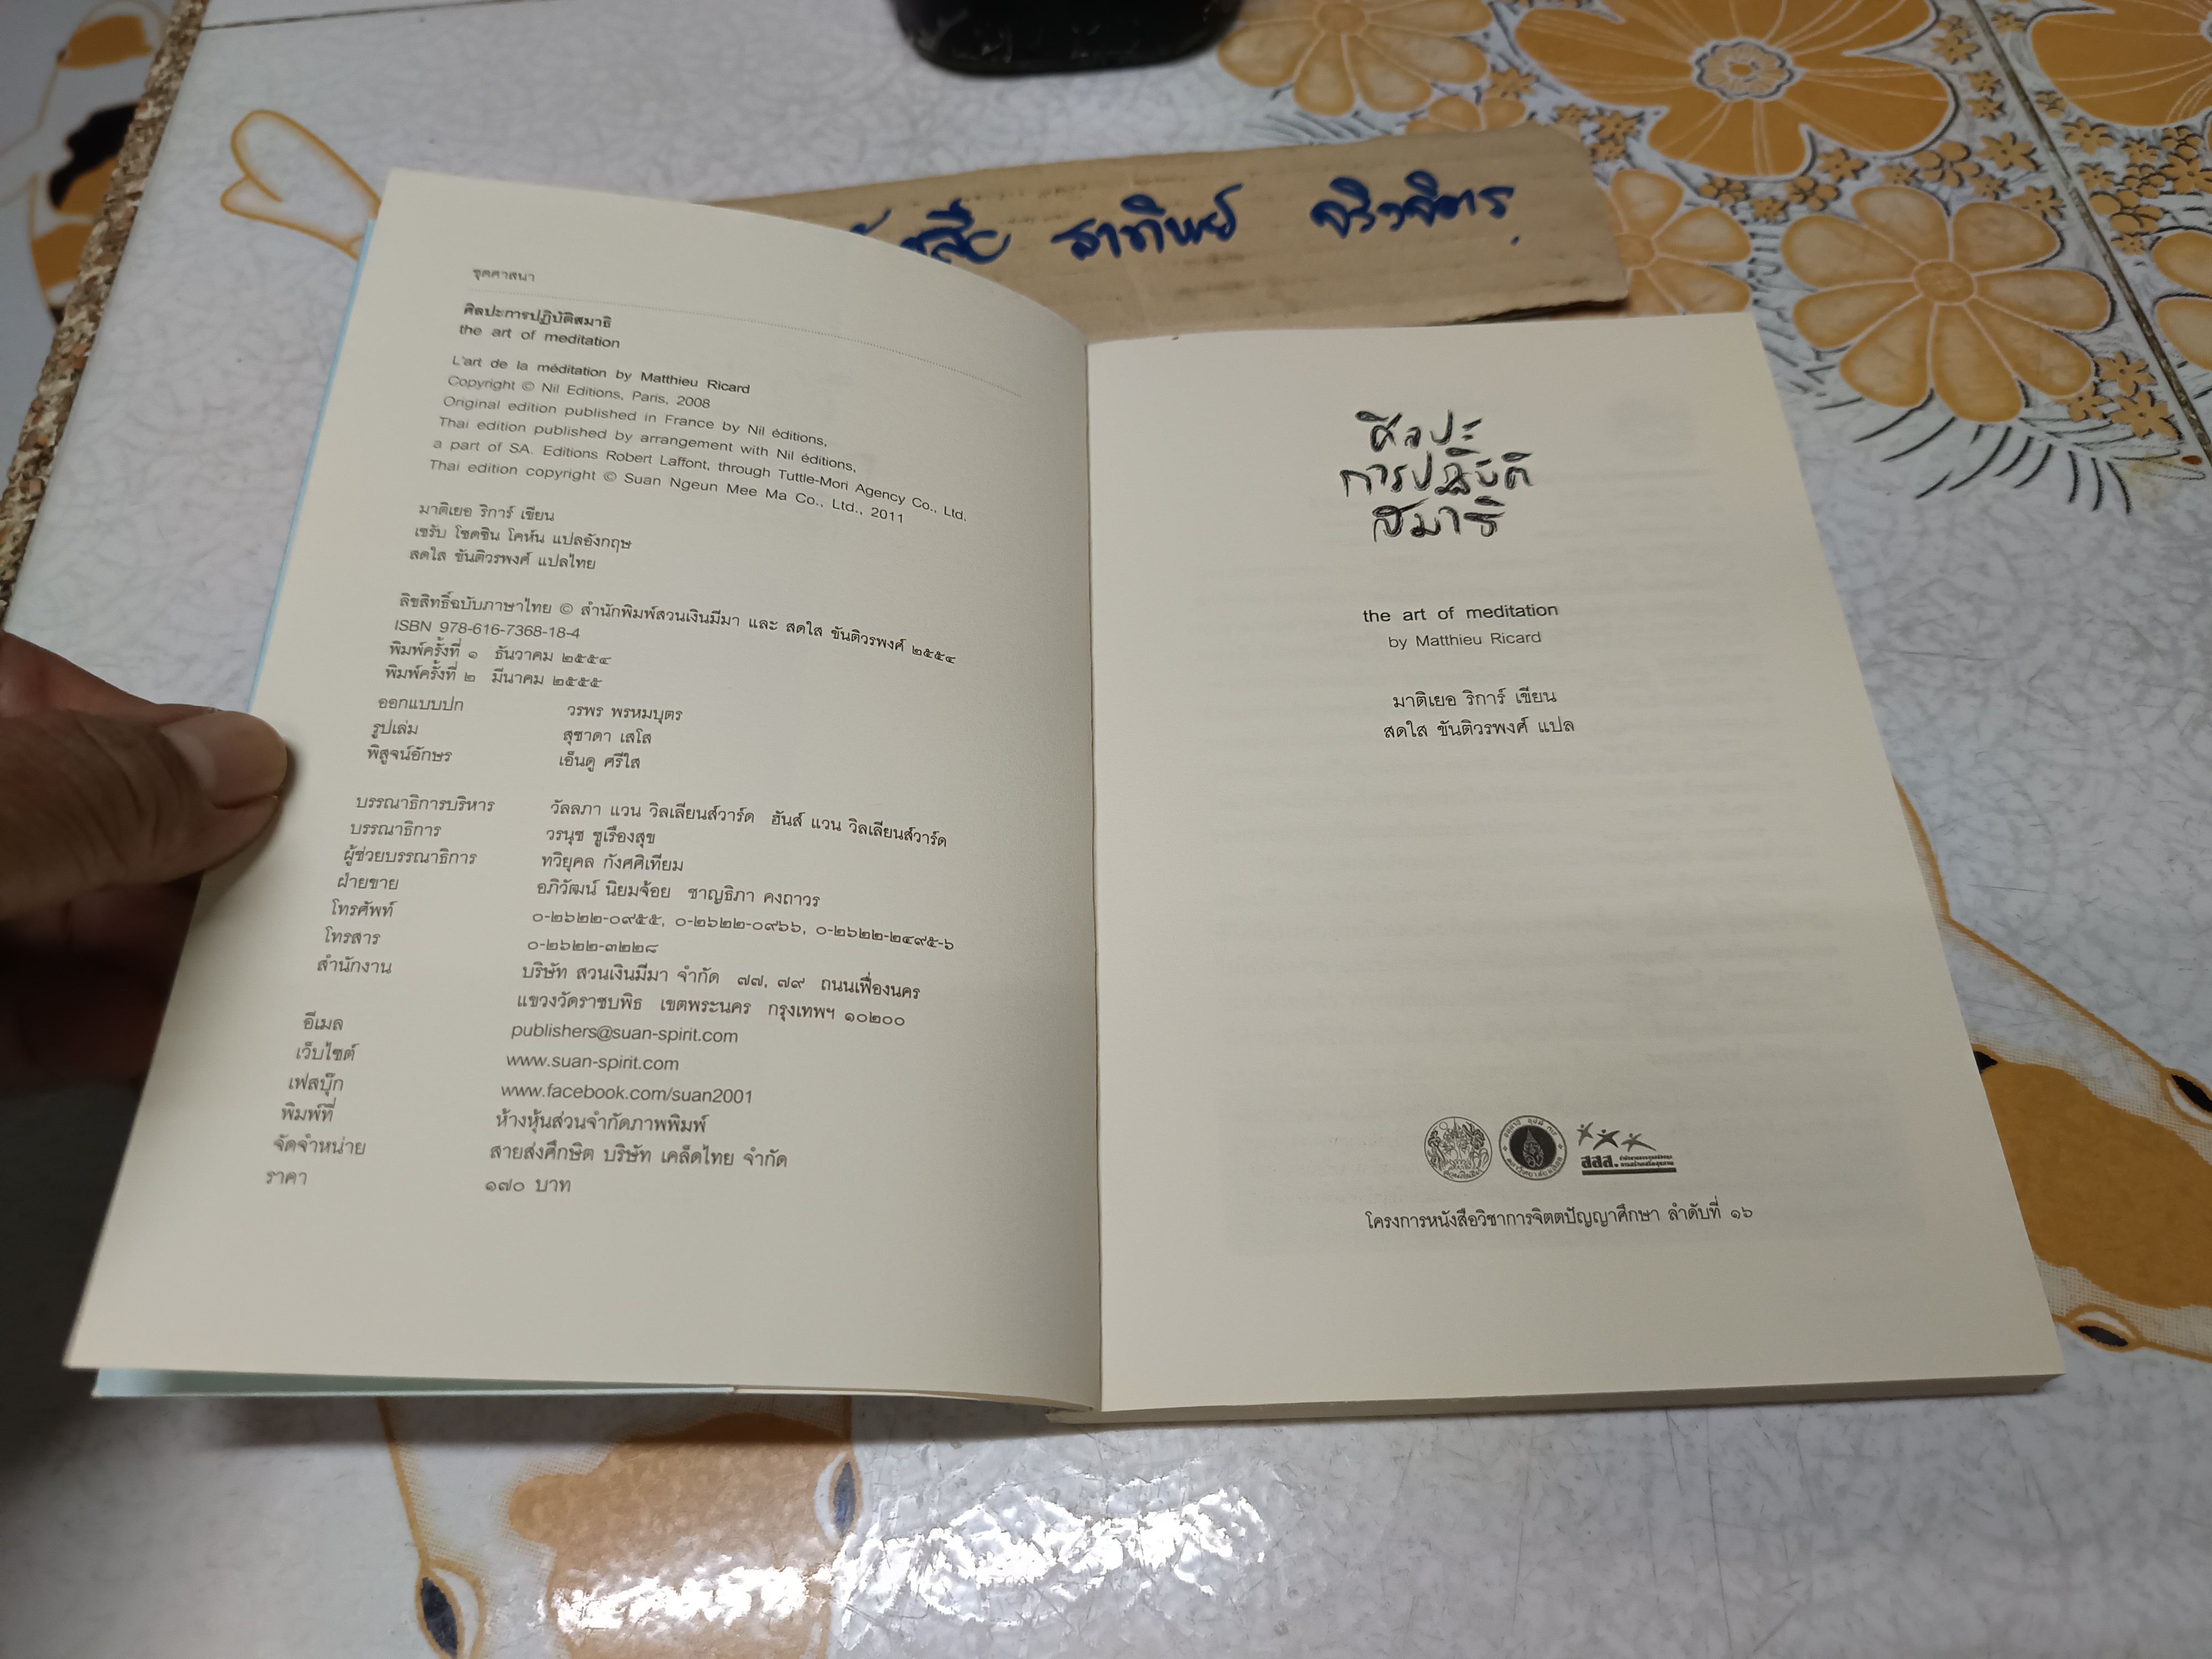 ธาทิพย์
ชุดศาสนา
ศิลปะการปฏิบัติสมาธิ
the art of meditation
L'art de la méditation by Matthieu Ricard
Copyright © Nil Editions, Paris, 2008
Original edition published in France by Nil éditions,
Thai edition published by arrangement with Nil éditions,
a part of SA. Editions Robert Laffont, through Tuttle-Mori Agency Co., Ltd.
Thai edition copyright © Suan Ngeun Mee Ma Co., Ltd., 2011
มาติเยอ ริการ์ เขียน
เชรับ โชดซิน โคห์น แปลอังกฤษ
สดใส ขันติวรพงศ์ แปลไทย
ลิขสิทธิ์ฉบับภาษาไทย © สำนักพิมพ์สวนเงินมีมา และ สดใส ขันติวรพงศ์ ๒๕๕๔
ISBN 978-616-7368-18-4
พิมพ์ครั้งที่ ๑ ธันวาคม ๒๕๕๔
พิมพ์ครั้งที่ ๒ มีนาคม ๒๕๕๕
ออกแบบปก วรพร พรหมบุตร
รูปเล่ม สุชาดา เสโส
พิสูจน์อักษร เอ็นดู ศรีใส
บรรณาธิการบริหาร วัลลภา แวน วิลเลียนส์วาร์ด ฮันส์ แวน วิลเลียนส์วาร์ด
บรรณาธิการ วรนุช ชูเรืองสุข
ผู้ช่วยบรรณาธิการ ทวิยุคล กังศศิเทียม
ฝ่ายขาย อภิวัฒน์ นิยมจ้อย ชาญธิภา คงถาวร
โทรศัพท์ ๐-๒๖๒๒-๐๙๕๕, ๐-๒๖๒๒-๐๙๖๖, ๐-๒๖๒๒-๒๔๙๕-๖
โทรสาร ๐-๒๖๒๒-๓๒๒๘
สำนักงาน บริษัท สวนเงินมีมา จำกัด ๗๗, ๗๙ ถนนเฟื่องนคร
แขวงวัดราชบพิธ เขตพระนคร กรุงเทพฯ ๑๐๒๐๐
อีเมล publishers@suan-spirit.com
เว็บไซต์ www.suan-spirit.com
เฟสบุ๊ก www.facebook.com/suan2001
พิมพ์ที่ ห้างหุ้นส่วนจำกัดภาพพิมพ์
จัดจำหน่าย สายส่งศึกษิต บริษัท เคล็ดไทย จำกัด
ราคา ๑๗๐ บาท
ศิลปะ
การปฏิบัติ
สมาธิ
the art of meditation
by Matthieu Ricard
มาติเยอ ริการ์ เขียน
สดใส ขันติวรพงศ์ แปล
สสส.
โครงการหนังสือวิชาการจิตตปัญญาศึกษา ลำดับที่ ๑๖